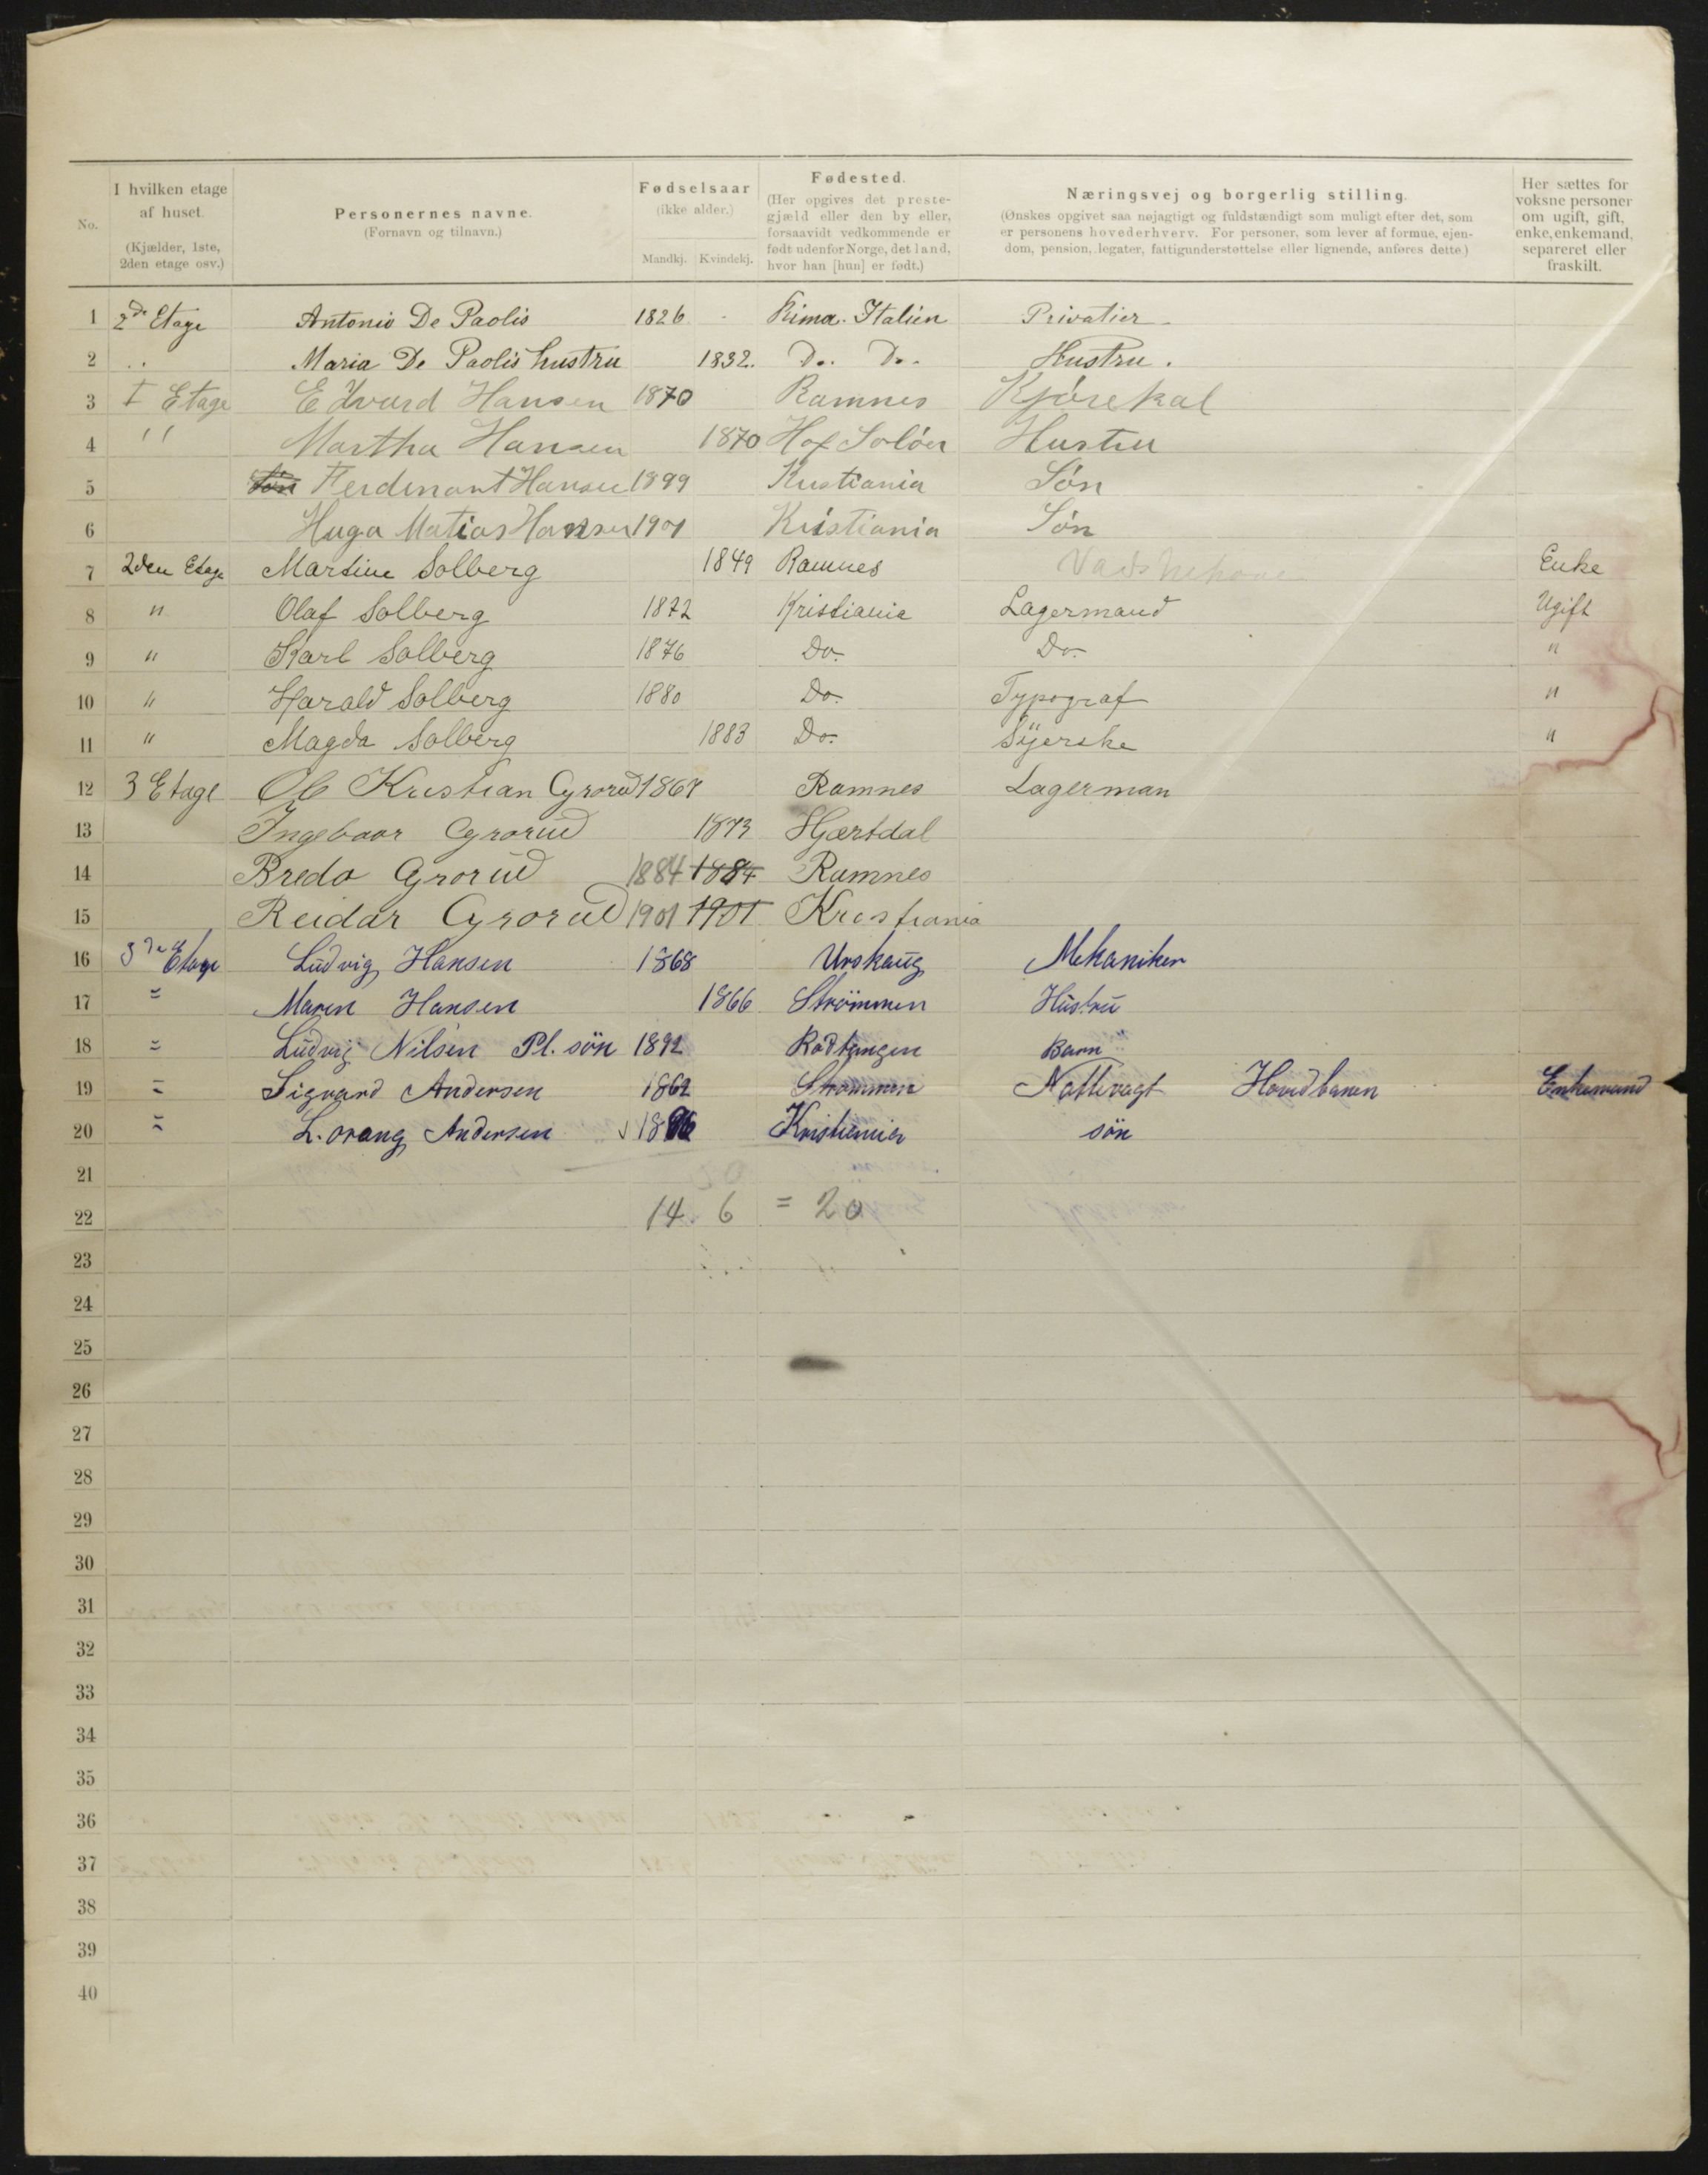 No.
I hvilken etage af huset. (Kjælder, 1ste, 2den etage osv.)
Personernes navne. (Fornavn og tilnavn.)
Fødselsaar (ikke alder.) Mandkj. Kvindekj.
Fødested. (Her opgives det prestegjæld eller den by eller, forsaavidt vedkommende er født udenfor Norge, det land, hvor han [hun] er født.)
Næringsvej og borgerlig stilling. (Ønskes opgivet saa nøjagtigt og fuldstændigt som muligt efter det, som er personens hovederhverv. For personer, som lever af formue, ejendom, pension, legater, fattigunderstøttelse eller lignende, anføres dette.)
Her sættes for voksne personer om ugift, gift, enke, enkemand, separeret eller fraskilt.
1 2de Etage Antonio De Paolis 1826 Rima. Italien Privatier.
2 " Maria De Paolis hustru 1832. Do. Do. Hustru.
3 I Etage Edvard Hansen 1870 Ramnes Kjørekal
4 " Martha Hansen 1870 Hof Soløer Hustru
5 Søn Ferdinant Hansen 1899 Kristiania Søn
6 Huga Matias Hansen 1901 Kristiania Søn
7 2den Etage Martine Solberg 1849 Ramnes Enke
8 " Olaf Solberg 1872 Kristiania Lagermand Ugift
9 " Karl Solberg 1876 Do. Do. "
10 " Harald Solberg 1880 Do. Typograf "
11 " Magda Solberg 1883 Do. Syerske "
12 3 Etage Ole Kristian Grorud 1867 Ramnes Lagerman
13 Ingeboor Grorud 1873 Hjærtdal
14 Bredo Grorud 1884 1884 Ramnes
15 Reidar Grorud 1901 1901 Krestiania
16 3de Etage Ludvig Hansen 1868 Urskaug Mekaniker
17 " Maren Hansen 1866 Strømmen Hustru
18 " Ludvig Nilsen Pl. søn 1892 Rødtangen Barn
19 " Sigvard Andersen 1862 Strømmen Nattevagt Hovedbanen Enkemand
20 " L. orang Andersen 1896 Kristiania søn
21
22 14 6 = 20
23
24
25
26
27
28
29
30
31
32
33
34
35
36
37
38
39
40